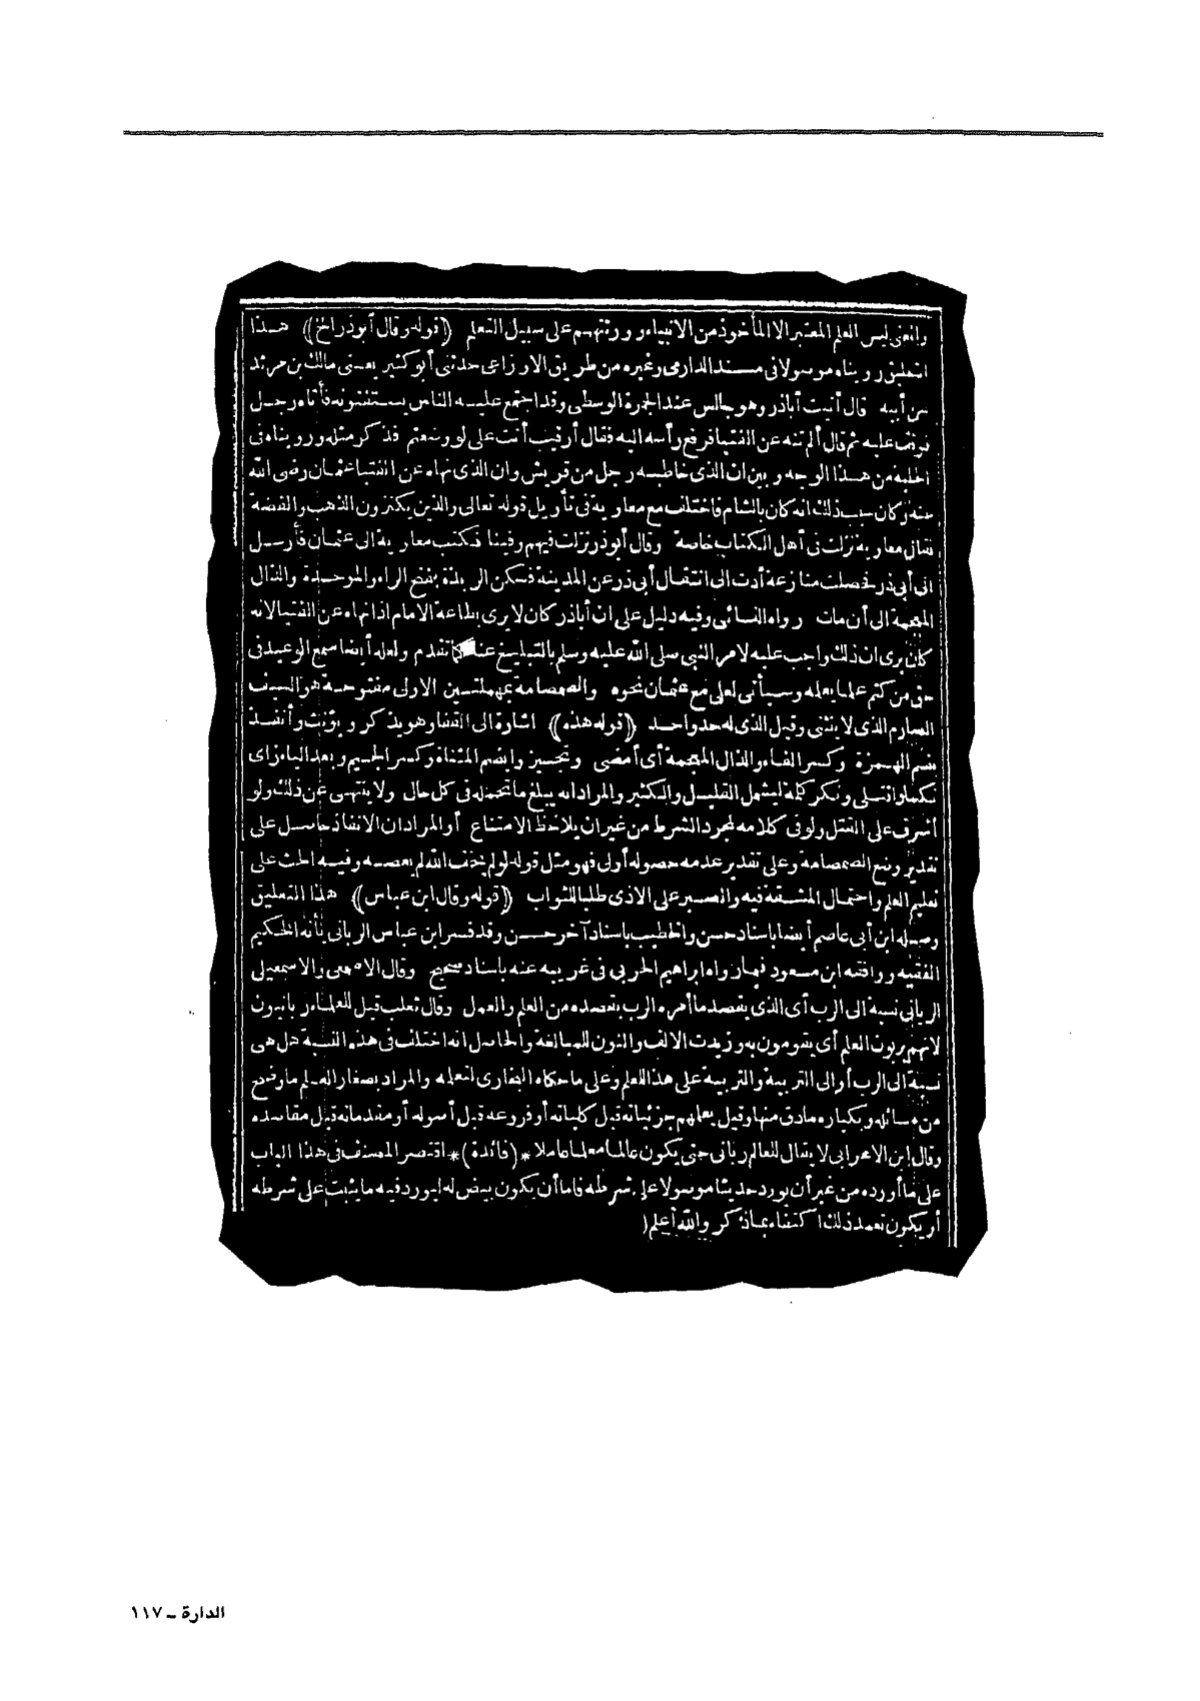 والمعنى ليس العلم المعتبر الا المأخوذ من الانبياء وورثتهم على سبيل التعلم ((قوله وقال أبوذر الخ)) هذا
التعليق رويناه موصولا فى مسند الدارمى وغيره من طريق الاوزاعى حدثنى أبو كثير يعنى مالك بن مرثد
عن أبيه قال أتيت أباذر وهو جالس عند الجمرة الوسطى وقد اجتمع عليه الناس يستفتونه فأتاه رجل
فوقف عليه ثم قال ألم تنه عن الفتيا فرفع رأسه اليه فقال أرقيب أنت على لو وضعتم فذكر مثله ورويناه فى
الحلية من هذا الوجه وبين ان الذى خاطبه رجل من قريش وان الذى نهاه عن الفتيا عثمان رضى الله
عنه وكان سبب ذلك انه كان بالشام فاختلف مع معاوية فى تأويل قوله تعالى والذين يكنزون الذهب والفضة
فقال معاوية نزلت فى أهل الكتاب خاصة وقال أبوذر نزلت فيهم وفينا فكتب معاوية الى عثمان فأرسل
الى أبى ذر فحصلت منازعة أدت الى انتقال أبى ذر عن المدينة فسكن الربذة بفتح الراء والموحدة والذال
المعجمة الى أن مات رواه النسائى وفيه دليل على ان أباذر كان لا يرى بطاعة الامام اذا نهاه عن الفتيا لانه
كان يرى ان ذلك واجب عليه لامر النبى صلى الله عليه وسلم بالتبليغ عنه كما تقدم ولعله أيضا سمع الوعيد فى
حق من كتم علما يعلمه وسيأتى لعلى مع عثمان نحوه والصمصامة بمهملتين الاولى مفتوحة هو السيف
الصارم الذى لا ينثنى وقيل الذى له حد واحد ((قوله هذه)) اشارة الى القفا وهو يذكر ويؤنث وأنفذ
بضم الهمزة وكسر الفاء والذال المعجمة أى أمضى وتجيزوا بضم المثناة وكسر الجيم وبعد الياء زاى
تكملوا قتلى ونكر كلمة ليشمل القليل والكثير والمراد انه يبلغ ما تحمله فى كل حال ولا ينتهى عن ذلك ولو
أشرف على القتل ولو فى كلامه لمجرد الشرط من غير ان يلاحظ الامتناع أو المراد ان الانفاذ حاصل على
تقدير وضع الصمصامة وعلى تقدير عدمه حصوله أولى فهو مثل قوله لو لم يخف الله لم يعصه وفيه الحث على
تعليم العلم واحتمال المشقة فيه والصبر على الاذى طلبا للثواب ((قوله وقال ابن عباس)) هذا التعليق
وصله ابن أبى عاصم أيضا باسناد حسن والخطيب باسناد آخر حسن وقد فسر ابن عباس الربانى بأنه الحكيم
الفقيه ووافقه ابن مسعود فيما رواه ابراهيم الحربى فى غريبه عنه باسناد صحيح وقال الاصمعى والاسمعيلى
الربانى نسبة الى الرب أى الذى يقصد ما أمره الرب بقصده من العلم والعمل وقال ثعلب قيل للعلماء ربانيون
لانهم يربون العلم أى يقومون به وزيدت الالف والنون للمبالغة والحاصل انه اختلف فى هذه النسبة هل هى
نسبة الى الرب أو الى التربية والتربية على هذا للعلم وعلى ما حكاه البخارى لتعلمه والمراد بصغار العلم ما وضح
من مسائله وبكباره ما دق منها وقيل يعلمهم جزئياته قبل كلياته أو فروعه قبل أصوله أو مقدماته قبل مقاصده
وقال ابن الاعرابى لا يقال للعالم ربانى حتى يكون عالما معلما عاملا *(فائدة)* اقتصر المصنف فى هذا الباب
على ما أورده من غير أن يورد حديثا موصولا على شرطه فاما أن يكون بيض له ليورد فيه ما يثبت على شرطه
أو يكون تعمد ذلك اكتفاء بما ذكر والله أعلم
الدارة ـ ١١٧